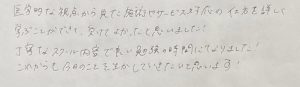 医学的な視点から見た施術やサービス、対応の仕方を詳しく
学ぶことができて、受けてよかったと思いました!
丁寧なスクール内容で良い勉強の時間になりました!
これからも今日のことを活かしていきたいと思います!